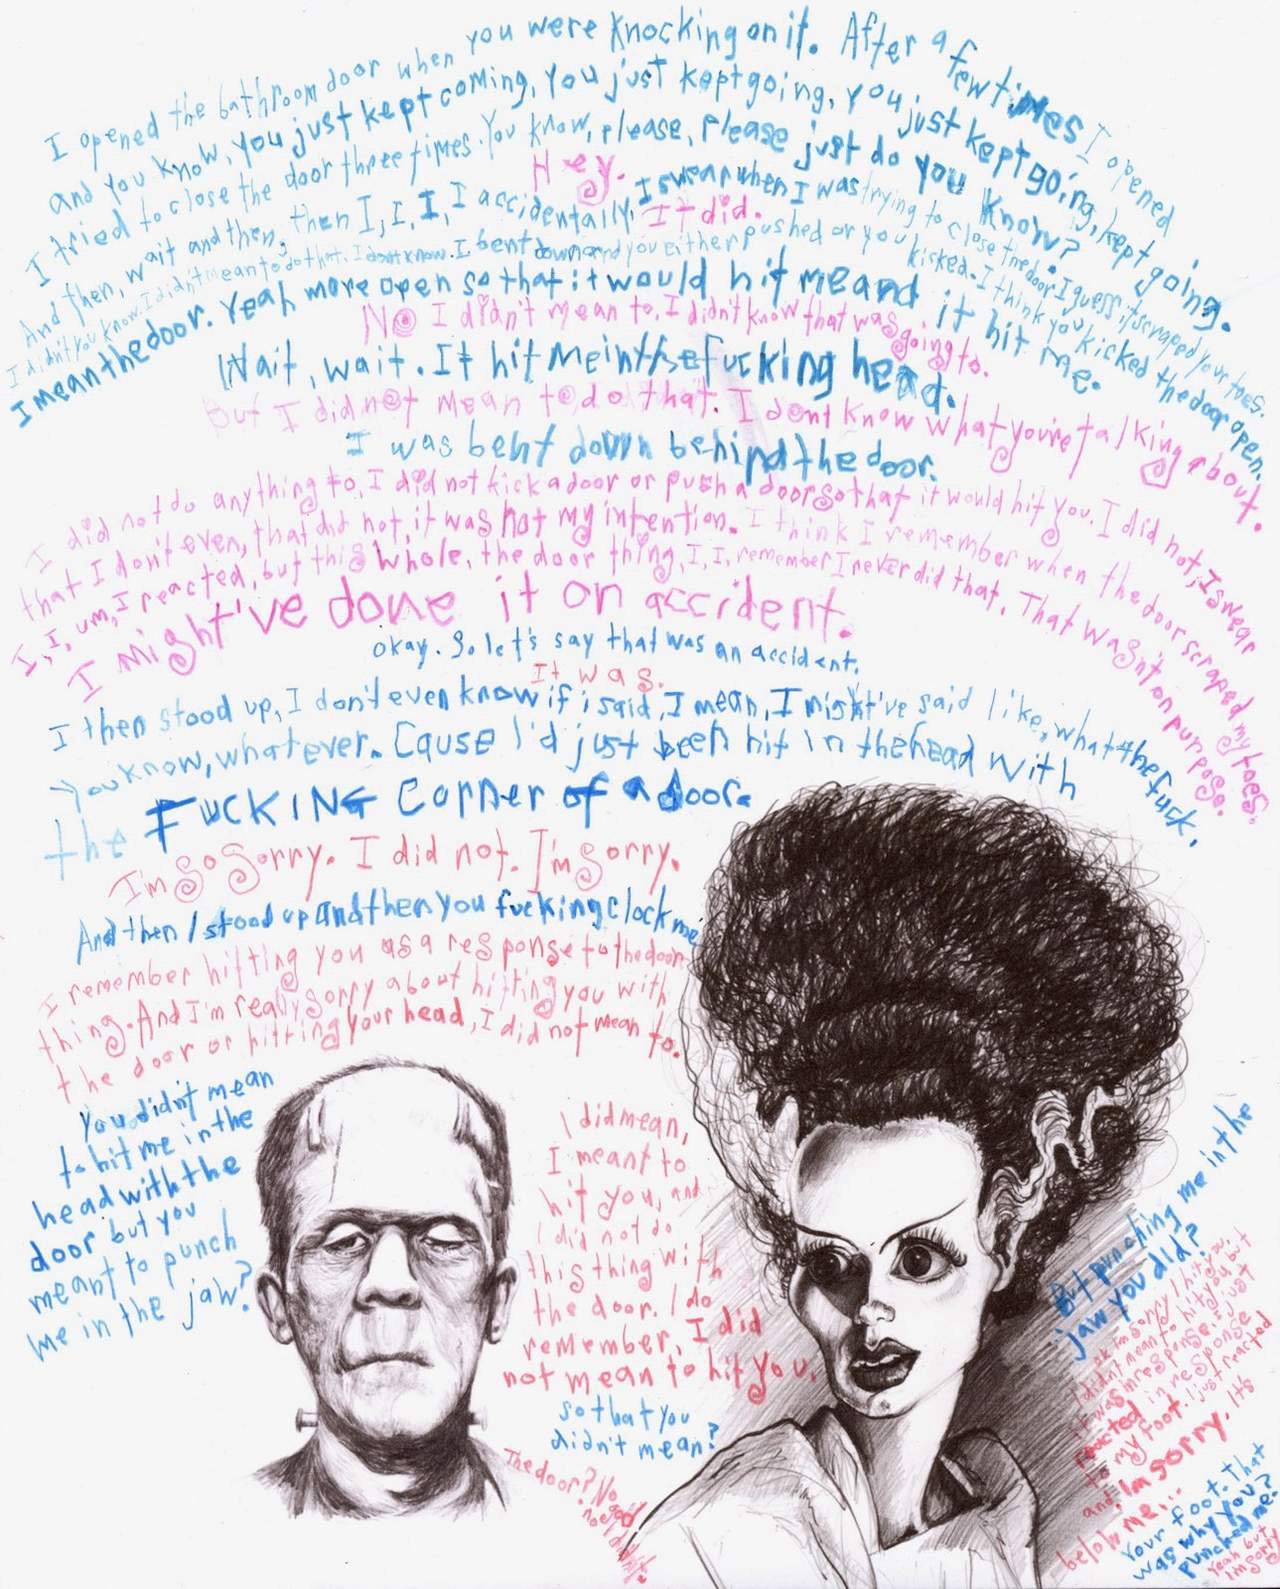 I opened the bathroom door when you were knocking on it. After a few times I opened
and you know, you just kept coming, you just kept going, you just kept going, kept going.
I tried to close the door three times. You know, please, please just do you know?
Hey.
And then, wait and then, then I, I, I, I accidentally, I swear when I was trying to close the door I guess it scraped your toes.
It did.
I didn't you know. I didn't mean to do that. I dont know. I bent down and you either pushed or you kicked. I think you kicked the door open.
I mean the door. Yeah more open so that it would hit me and it hit me.
No I didn't mean to, I didn't know that was going to.
Wait, wait. It hit me in the fucking head.
But I did not mean to do that. I dont know what you're talking about.
I was bent down behind the door.
I did not do anything to, I did not kick a door or push a door so that it would hit you. I did not, I swear
that I don't even, that did not, it was not my intention. I think I remember when the door scraped my toes.
I, I, um, I reacted, but this whole, the door thing, I, I, remember I never did that. That wasn't on purpose.
I might've done it on accident.
okay. So let's say that was an accident.
It was.
I then stood up, I don't even know if i said, I mean, I might've said like, what the fuck,
you know, whatever. Cause I'd just been hit in the head with
the FUCKING corner of a door.
I'm so sorry. I did not. I'm sorry.
And then I stood up and then you fucking clock me
I remember hitting you as a response to the door
thing. And I'm really sorry about hitting you with
the door or hitting your head, I did not mean to.
You didn't mean
to hit me in the
head with the
door but you
meant to punch
me in the jaw?
I did mean,
I meant to
hit you, and
I did not do
this thing with
the door. I do
remember, I did
not mean to hit you.
so that you
didn't mean?
The door? No
god
no I didn't.
But punching me in the
jaw you did?
ok im sorry I hit you,
I didn't mean to hit you but
it was in response, i just
reacted in response
to my foot. I just reacted
and, Im sorry. It's
below me...
Your foot. That
was why you
punched me?
Yeah but
im sorry